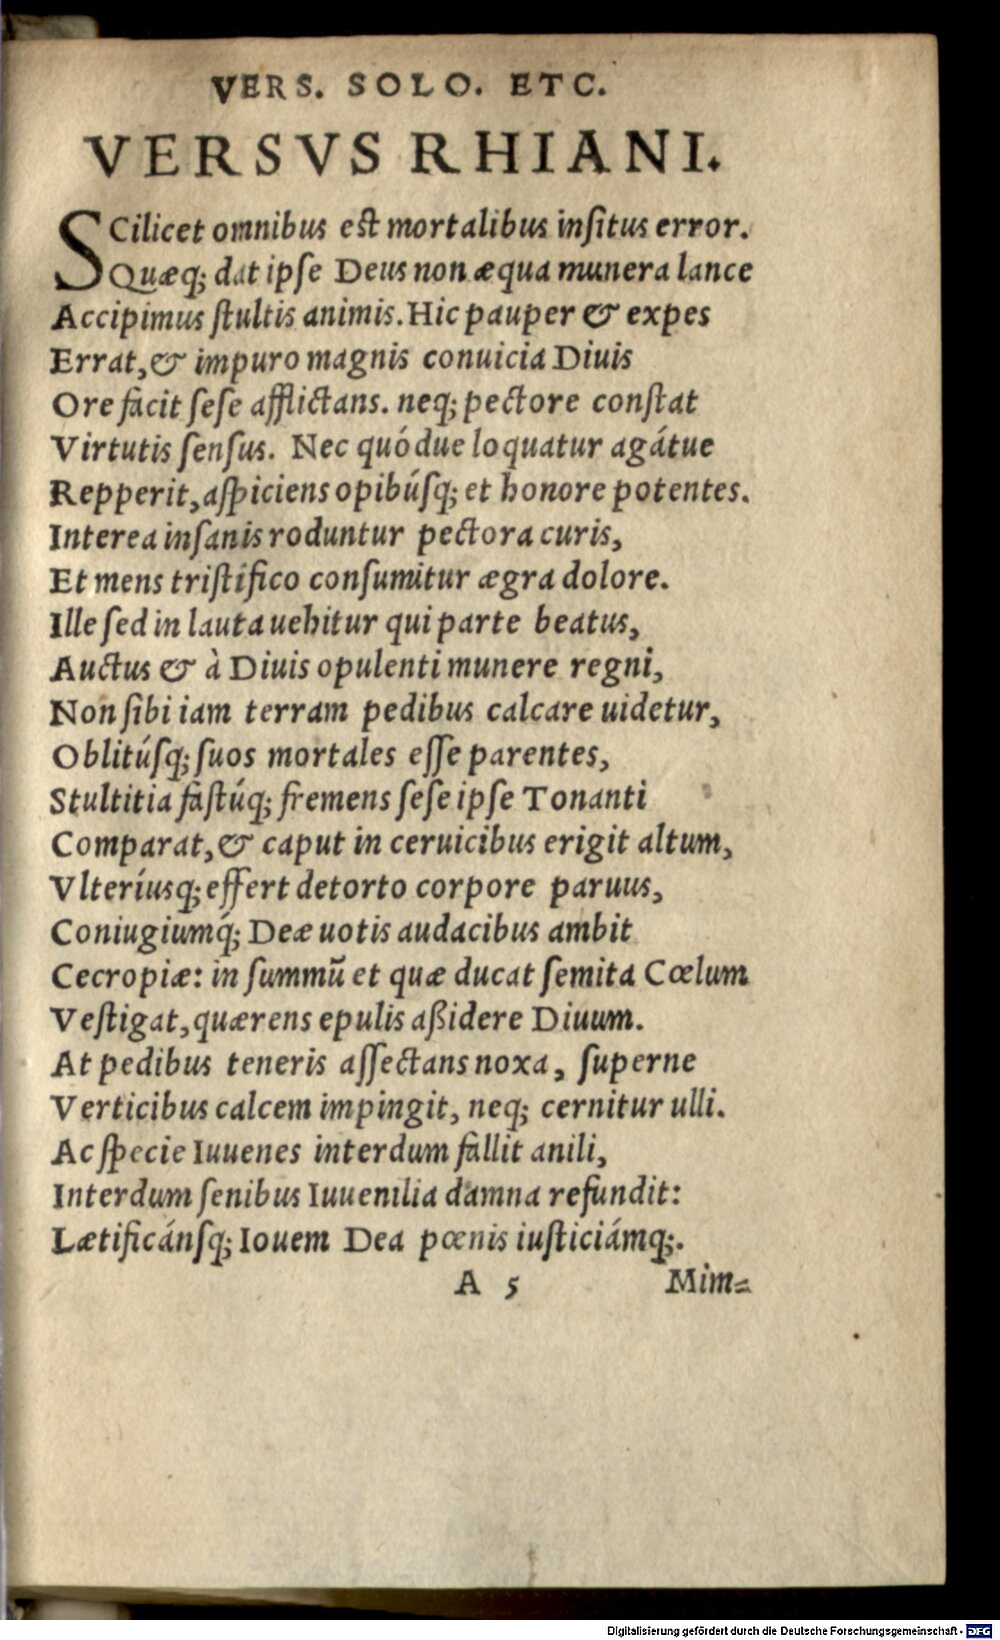 VERS. SOLO. ETC.
VERSVS RHIANI.
SCilicet omnibus est mortalibus insitus error.
Quæq; dat ipse Deus non æqua munera lance
Accipimus stultis animis. Hic pauper & expes
Errat, & impuro magnis conuicia Diuis
Ore facit sese afflictans. neq; pectore constat
Virtutis sensus. Nec quódue loquatur agátue
Repperit, aspiciens opibúsq; et honore potentes.
Interea insanis roduntur pectora curis,
Et mens tristifico consumitur ægra dolore.
Ille sed in lauta uehitur qui parte beatus,
Auctus & à Diuis opulenti munere regni,
Non sibi iam terram pedibus calcare uidetur,
Oblitúsq; suos mortales esse parentes,
Stultitia fastúq; fremens sese ipse Tonanti
Comparat, & caput in ceruicibus erigit altum,
Vlteríusq; effert detorto corpore paruus,
Coniugiumq́; Deæ uotis audacibus ambit
Cecropiæ: in summū et quæ ducat semita Cœlum
Vestigat, quærens epulis aßidere Diuum.
At pedibus teneris assectans noxa, superne
Verticibus calcem impingit, neq; cernitur ulli.
Ac specie Iuuenes interdum fallit anili,
Interdum senibus Iuuenilia damna refundit:
Lætificánsq; Iouem Dea pœnis iusticiámq;.
A 5
Mim=
Digitalisierung gefördert durch die Deutsche Forschungsgemeinschaft - DFG